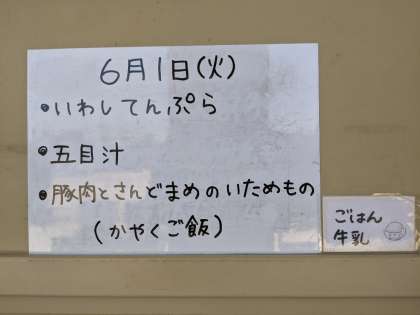 6月1日(火)
•いわしてんぷら
•五目汁
•豚肉とさんどまめのいためもの
(かやくご飯)
ごはん
牛乳